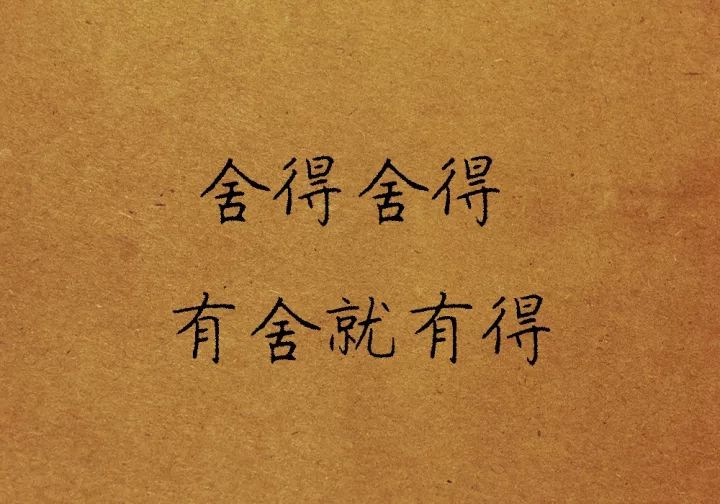 舍得舍得
有舍就有得